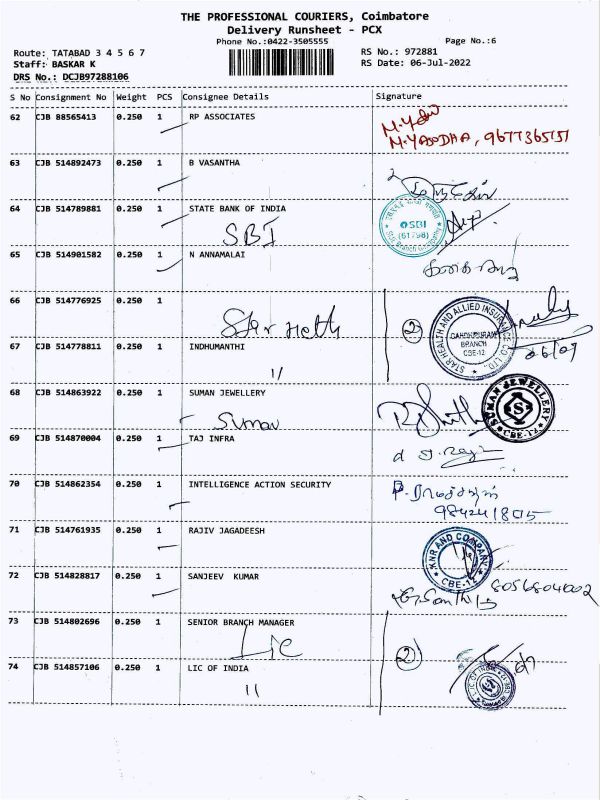 THE PROFESSIONAL COURIERS, Coimbatore
Delivery Runsheet - PCX
Phone No.:0422-3505555
Page No.:6
Route: TATABAD 3 4 5 6 7
RS No.: 972881
Staff: BASKAR K
RS Date: 06-Jul-2022
DRS No.: DCJB97288106
S No Consignment No Weight PCS Consignee Details Signature
62 CJB 88565413 0.250 1 RP ASSOCIATES
M.YASODHA, 9677365151
63 CJB 514892473 0.250 1 B VASANTHA
64 CJB 514789881 0.250 1 STATE BANK OF INDIA
SBI
SBI
(61798)
65 CJB 514901582 0.250 1 N ANNAMALAI
66 CJB 514776925 0.250 1
Star Helth
2
STAR HEALTH AND ALLIED INSURANCE CO. LTD.
BRANCH
CBE-12
67 CJB 514778811 0.250 1 INDHUMANTHI
11
68 CJB 514863922 0.250 1 SUMAN JEWELLERY
Suman
SUMAN JEWELLERY
S
CBE-12
69 CJB 514870004 0.250 1 TAJ INFRA
70 CJB 514862354 0.250 1 INTELLIGENCE ACTION SECURITY
71 CJB 514761935 0.250 1 RAJIV JAGADEESH
KNR AND COMPANY
CBE-12
72 CJB 514828817 0.250 1 SANJEEV KUMAR
8056804002
73 CJB 514802696 0.250 1 SENIOR BRANCH MANAGER
Lic
2
74 CJB 514857106 0.250 1 LIC OF INDIA
11